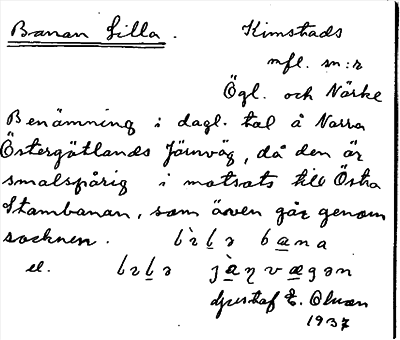 Banan Lilla. Kimstads
mfl. sn:r
Ögl. och Närke
Benämning i dagl. tal å Norra
Östergötlands Järnväg, då den är
smalspårig i motsats till Östra
Stambanan, som även går genom
socknen. bana
el.
Gustaf E. Olsson
1937